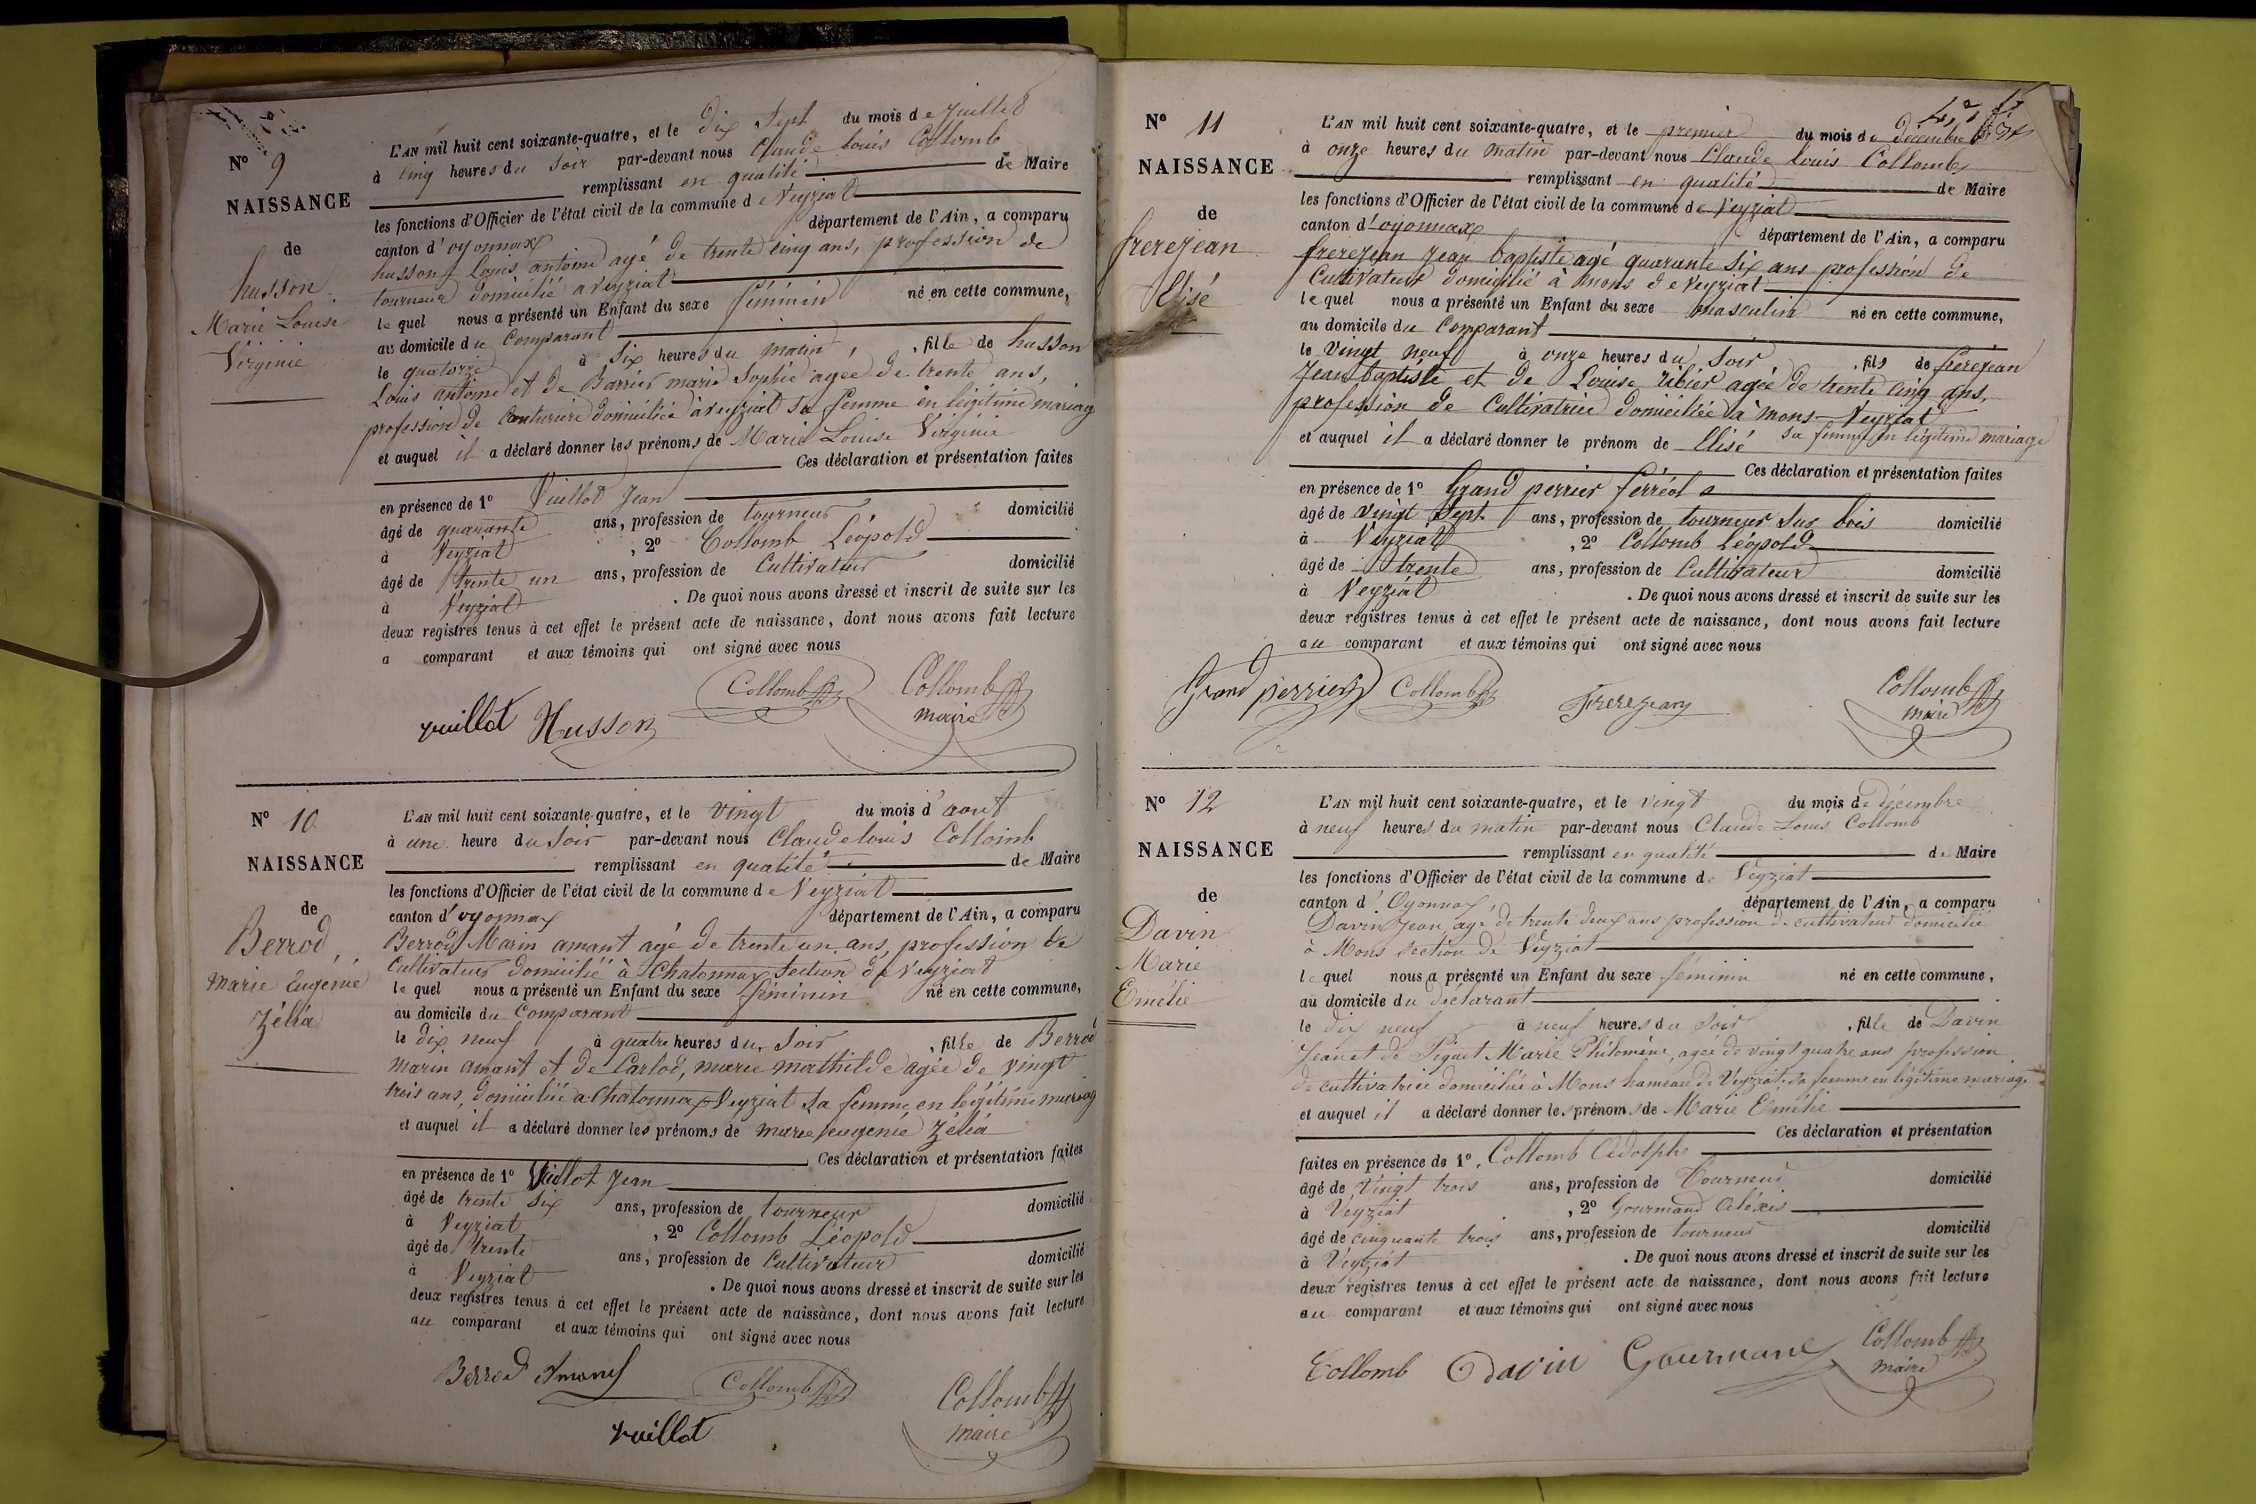 N° 9
NAISSANCE
de
husson
Marie Louise
Virginie
L'AN mil huit cent soixante-quatre, et le dix sept du mois de juillet
à cinq heures du soir par-devant nous Claude louis Collomb
remplissant en qualité de Maire
les fonctions d'Officier de l'état civil de la commune de Veyziat
canton d'oyonnax département de l'Ain, a comparu
husson Louis antoine agé de trente cinq ans, profession de
tourneur domicilié a veyziat
lequel nous a présenté un Enfant du sexe féminin né en cette commune,
au domicile du Comparant
le quatorze à six heures du matin, fille de husson
Louis antoine et de Barrier marie Sophie agée de trente ans,
profession de couturiere domiciliée à veyziat sa femme en légitime mariag
et auquel il a déclaré donner les prénoms de Marie Louise Virginie
Ces déclaration et présentation faites
en présence de 1° Vuillot Jean
âgé de quarante ans, profession de tourneur domicilié
à Veyziat, 2° Collomb Léopold
âgé de trente un ans, profession de Cultivateur domicilié
à Veyziat. De quoi nous avons dressé et inscrit de suite sur les
deux registres tenus à cet effet le présent acte de naissance, dont nous avons fait lecture
a comparant et aux témoins qui ont signé avec nous
vuillot Husson Collomb Collomb
maire
N° 10
NAISSANCE
de
Berrod,
marie Eugénie
Zélia
L'AN mil huit cent soixante-quatre, et le vingt du mois d'aout
à une heure du soir par-devant nous Claude louis Collomb
remplissant en qualité de Maire
les fonctions d'Officier de l'état civil de la commune de Veyziat
canton d'oyonnax département de l'Ain, a comparu
Berrod Marin amant agé de trente un ans, profession de
Cultivateur domicilié à Chatonnax section de veyziat
lequel nous a présenté un Enfant du sexe féminin né en cette commune,
au domicile du Comparant
le dix neuf à quatre heures du soir, fille de Berrod
Marin amant et de Carlod, marie mathilde agée de vingt
trois ans, domiciliée a Chatonnax Veyziat sa femme en légitime mariag
et auquel il a déclaré donner les prénoms de marie eugénie Zélia
Ces déclaration et présentation faites
en présence de 1° Vuillot Jean
âgé de trente six ans, profession de tourneur domicilié
à Veyziat, 2° Collomb Léopold
âgé de trente ans, profession de Cultivateur domicilié
à Veyziat. De quoi nous avons dressé et inscrit de suite sur les
deux registres tenus à cet effet le présent acte de naissance, dont nous avons fait lecture
au comparant et aux témoins qui ont signé avec nous
Berrod Collomb Collomb
vuillot maire
N° 11
NAISSANCE
de
frerejean
Elisé
L'AN mil huit cent soixante-quatre, et le premier du mois de décembre
à onze heures du matin par-devant nous Claude Louis Collomb
remplissant en qualité de Maire
les fonctions d'Officier de l'état civil de la commune de Veyziat
canton d'oyonnax département de l'Ain, a comparu
frerejean Jean baptiste agé quarante six ans profession de
Cultivateur domicilié à mons de veyziat
lequel nous a présenté un Enfant du sexe masculin né en cette commune,
au domicile du Comparant
le vingt neuf à onze heures du soir, fils de frerejean
Jean baptiste et de Louise ribier agée de trente cinq ans,
profession de Cultivatrice domiciliée à mons Veyziat
sa femme en légitime mariage
et auquel il a déclaré donner le prénom de Elisé
Ces déclaration et présentation faites
en présence de 1° Grand perrier ferréol
âgé de vingt sept ans, profession de tourneur sur bois domicilié
à Veyziat, 2° Collomb Léopold
âgé de trente ans, profession de Cultivateur domicilié
à Veyziat. De quoi nous avons dressé et inscrit de suite sur les
deux registres tenus à cet effet le présent acte de naissance, dont nous avons fait lecture
au comparant et aux témoins qui ont signé avec nous
Grand perrier Collomb Frerejean Collomb
maire
N° 12
NAISSANCE
de
Davin
Marie
Emélie
L'AN mil huit cent soixante-quatre, et le vingt du mois de décembre
à neuf heures du matin par-devant nous Claude Louis Collomb
remplissant en qualité de Maire
les fonctions d'Officier de l'état civil de la commune de Veyziat
canton d'Oyonnax, département de l'Ain, a comparu
Davin Jean, agé de trente deux ans profession de cultivateur domicilié
à Mons section de Veyziat
lequel nous a présenté un Enfant du sexe féminin né en cette commune,
au domicile du déclarant
le dix neuf à neuf heures du soir, fille de Davin
Jean et de Piquet Marie Philomène, agée de vingt quatre ans profession
de cultivatrice domiciliée à Mons hameau de Veyziat sa femme en légitime mariage
et auquel il a déclaré donner les prénoms de Marie Emélie
Ces déclaration et présentation
faites en présence de 1°, Collomb Adolphe
âgé de vingt trois ans, profession de Tourneur domicilié
à Veyziat, 2° Gourmand Aléxis
âgé de cinquante trois ans, profession de tourneur domicilié
à Veyziat. De quoi nous avons dressé et inscrit de suite sur les
deux registres tenus à cet effet le présent acte de naissance, dont nous avons fait lecture
au comparant et aux témoins qui ont signé avec nous
Collomb Davin Gourmand Collomb
maire